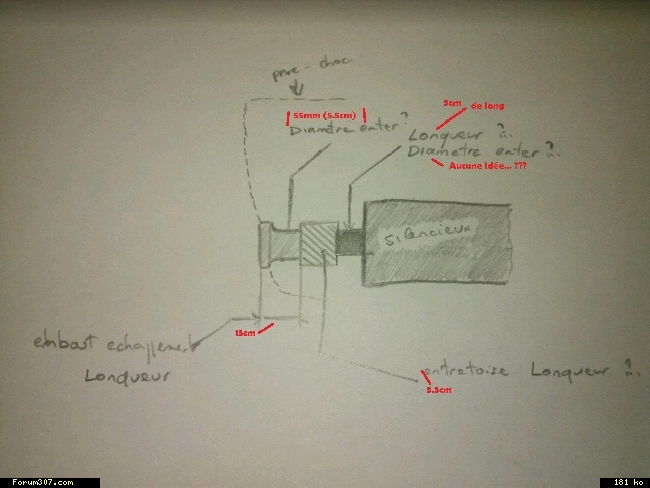 pare-choc
5cm
de long
55mm (5.5cm)
Diamètre enter?
Longueur ?..
Diametre enter ?..
Aucune Idée...???
Silencieux
13cm
embout echappement
Longueur
entretoise Longueur ?..
5.5cm
Forum307.com
181 ko